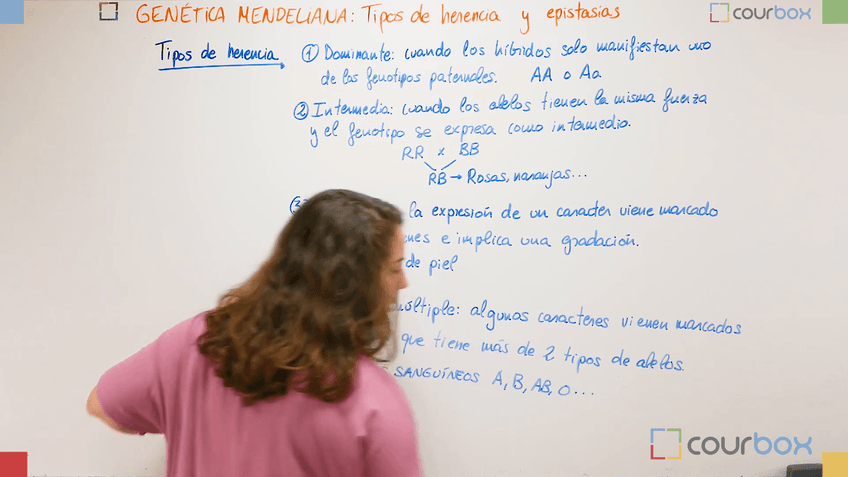 GENÉTICA MENDELIANA: Tipos de herencia y epistasias
courbox
Tipos de herencia
① Dominante: cuando los híbridos solo manifiestan uno
de los fenotipos paternales. AA o Aa
② Intermedia: cuando los alelos tienen la misma fuerza
y el fenotipo se expresa como intermedio.
RR x BB
RB → Rosas, naranjas...
③ la expresión de un caracter viene marcado
e implica una gradación.
de piel
múltiple: algunos caracteres vienen marcados
que tiene más de 2 tipos de alelos.
SANGUÍNEOS A, B, AB, O...
courbox